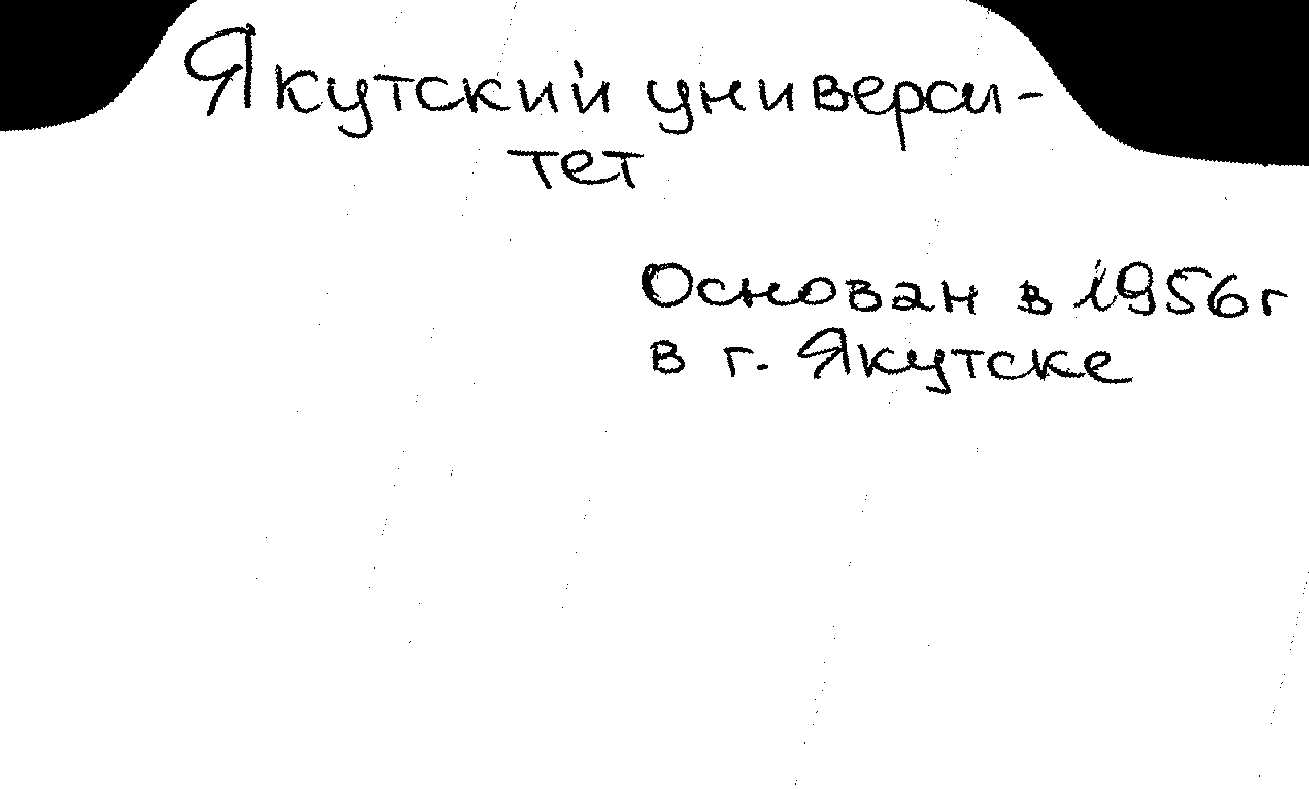 Якутский универси-
тет
Основан в 1956г
в г. Якутске